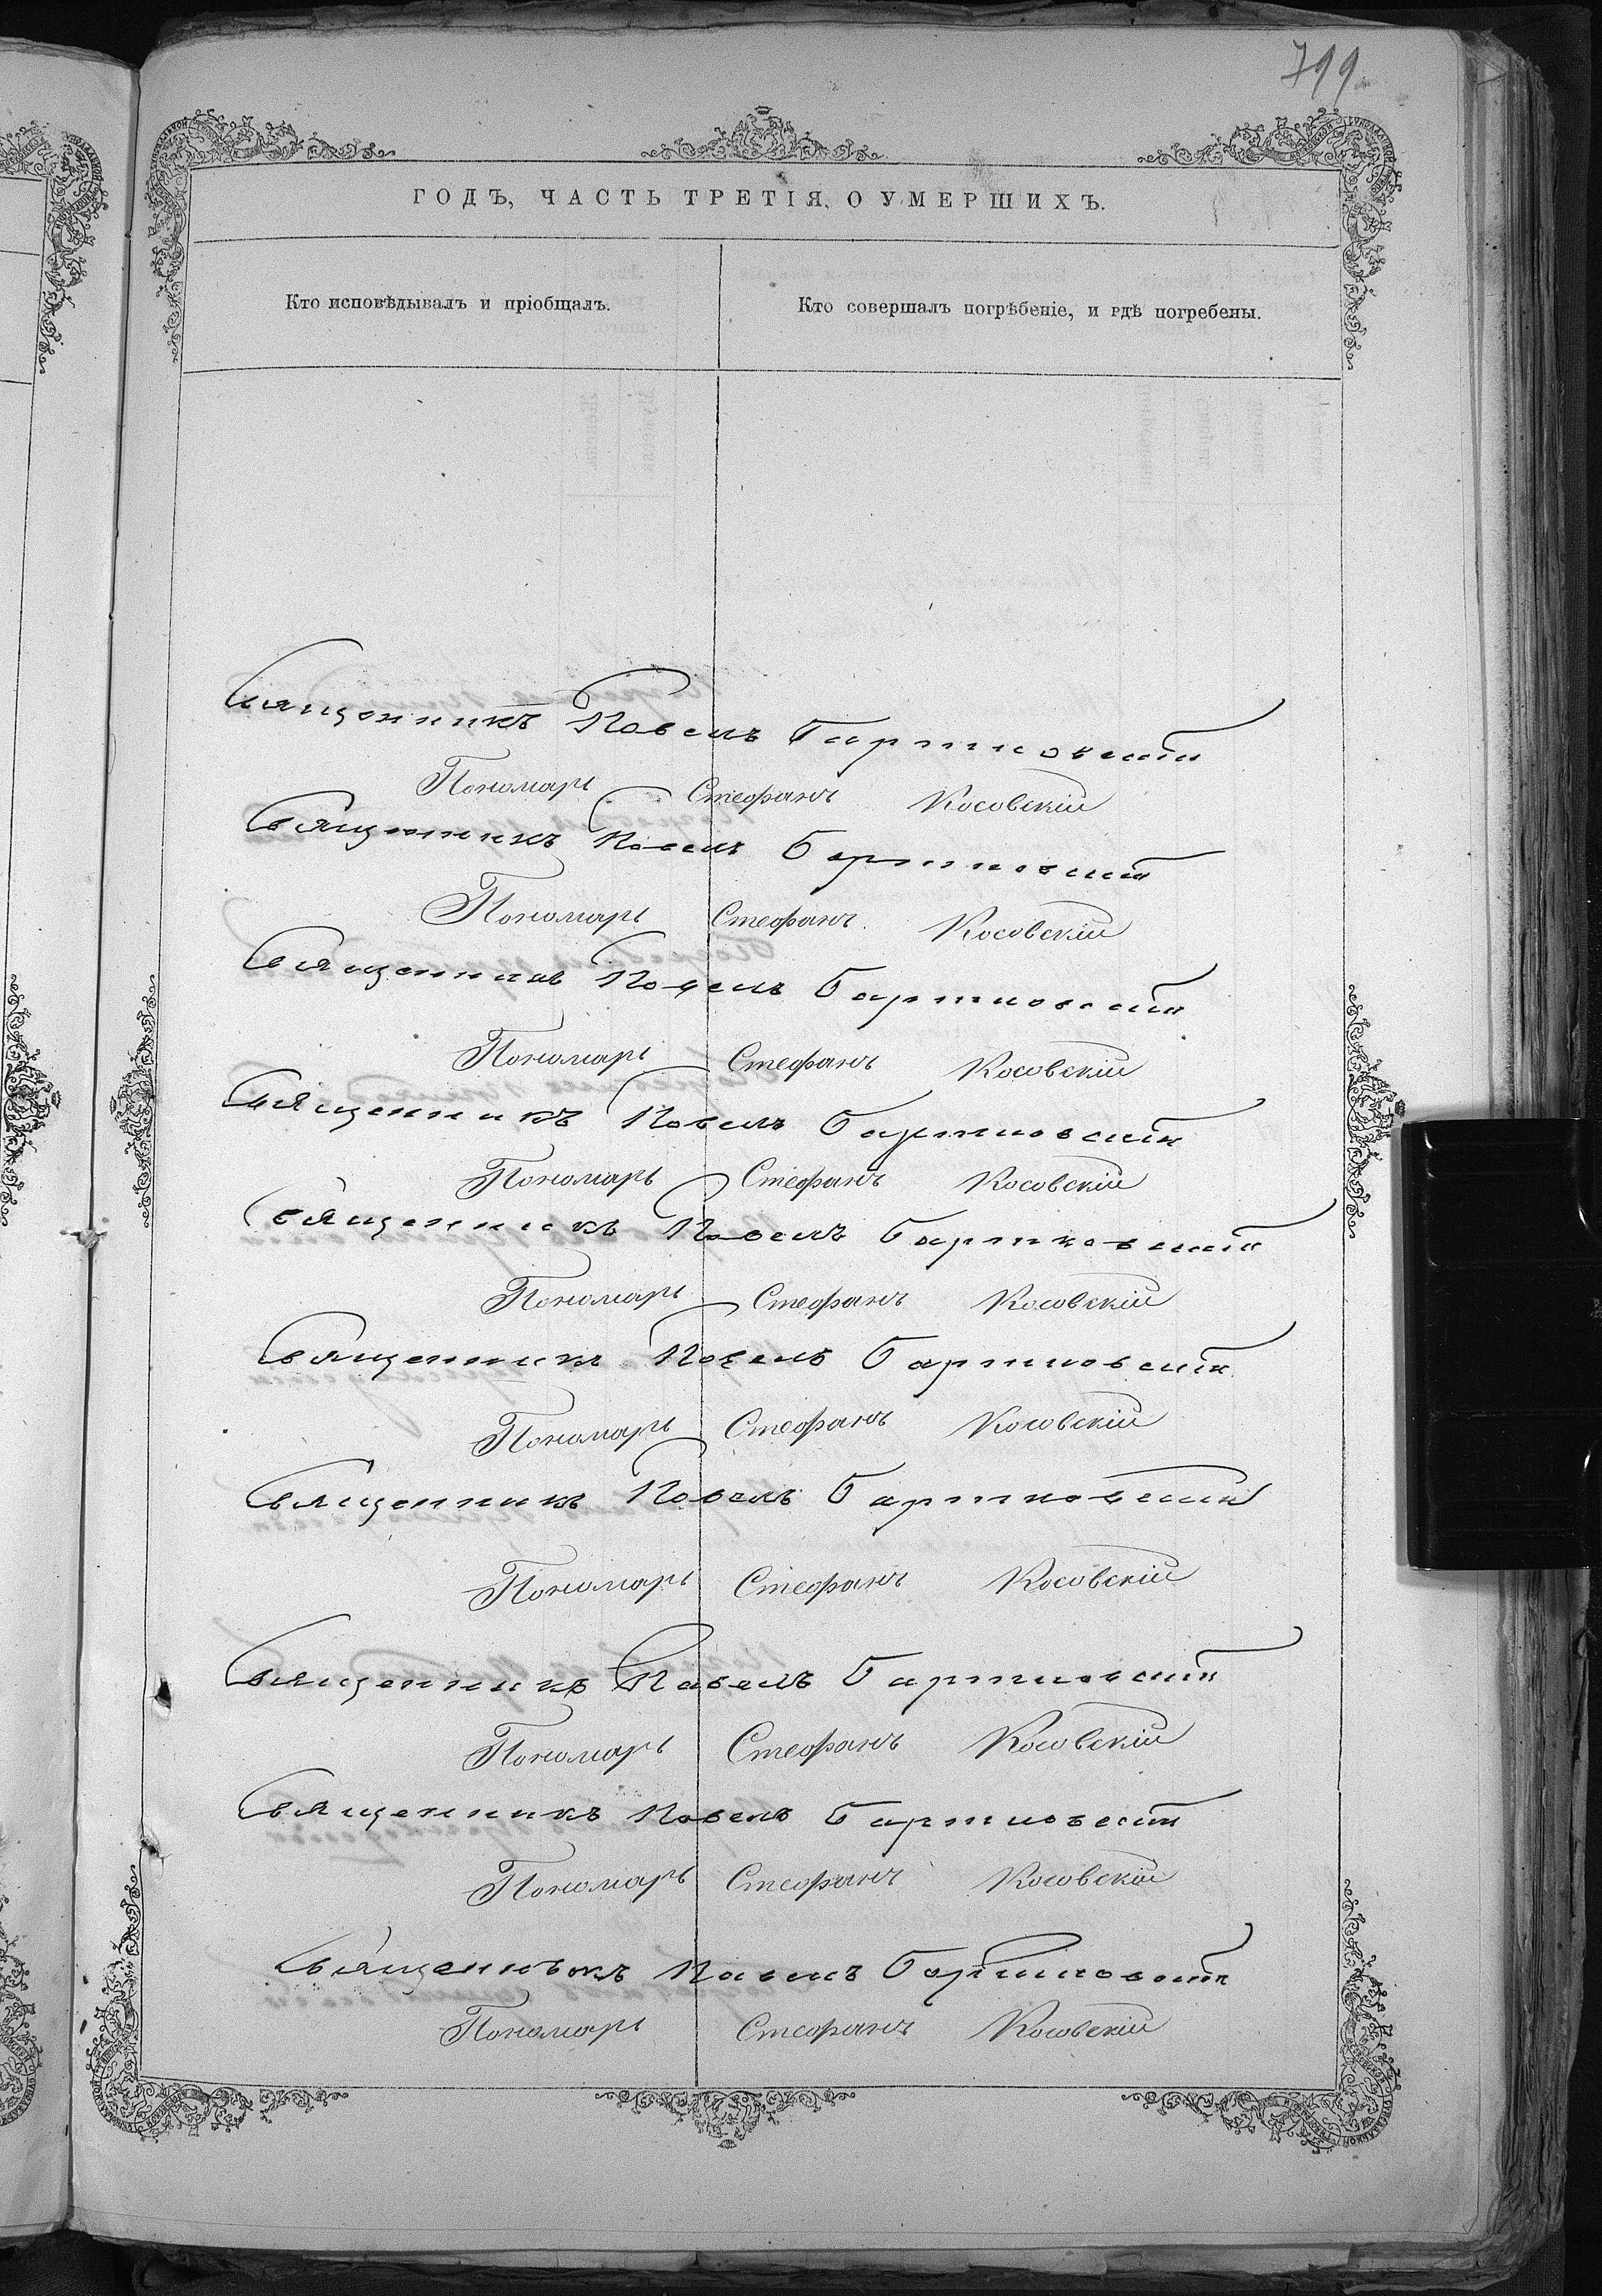 799
ГОДЪ, ЧАСТЬ ТРЕТІЯ, О УМЕРШИХЪ.
Кто исповѣдывалъ и пріобщалъ.
Кто совершалъ погрѣбеніе, и гдѣ погребены.
Священникъ Павелъ Бартковскій
Пономарь Стефанъ Косовскій
Священникъ Павелъ Бартковскій
Пономарь Стефанъ Косовскій
Священникъ Павелъ Бартковскій
Пономарь Стефанъ Косовскій
Священникъ Павелъ Бартковскій
Пономарь Стефанъ Косовскій
Священникъ Павелъ Бартковскій
Пономарь Стефанъ Косовскій
Священникъ Павелъ Бартковскій
Пономарь Стефанъ Косовскій
Священникъ Павелъ Бартковскій
Пономарь Стефанъ Косовскій
Священникъ Павелъ Бартковскій
Пономарь Стефанъ Косовскій
Священникъ Павелъ Бартковскій
Пономарь Стефанъ Косовскій
Священникъ Павелъ Бартковскій
Пономарь Стефанъ Косовскій